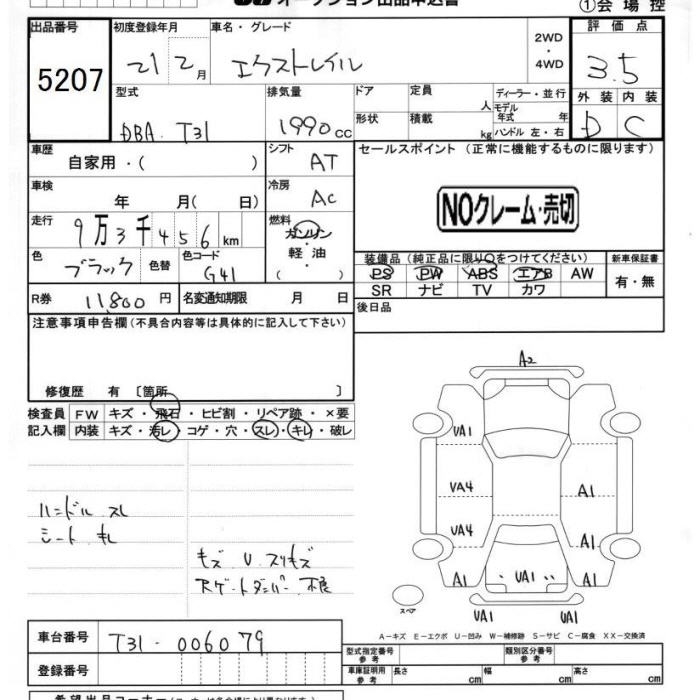 オークション出品申込書
①会場控
出品番号
5207
初度登録年月
21 2月
車名・グレード
エクストレイル
2WD
・
4WD
評価点
3.5
外装 内装
D C
型式
DBA-T31
排気量
1990cc
ドア
定員 人
ディーラー・並行
形状
積載 kg
モデル年式 年
ハンドル 左・右
車歴
自家用・( )
シフト
AT
セールスポイント (正常に機能するものに限ります)
NOクレーム・売切
車検
年 月( 日)
冷房
AC
走行
9万3千456km
燃料
ガソリン
・
軽油
( )
色
ブラック
色替
色コード
G41
装備品(純正品に限り○をつけてください)
PS PW ABS エアB AW
SR ナビ TV カワ
新車保証書
有・無
R券 11,800円
名変通知期限 月 日
後日品
注意事項申告欄(不具合内容等は具体的に記入して下さい)
修復歴 有〔箇所 〕
検査員 FW キズ・飛石・ヒビ割・リペア跡・×要
記入欄 内装 キズ・汚レ・コゲ・穴・スレ・キレ・破レ
ハンドル スレ
シート キレ
キズ U スリキズ
Rゲートダンパー 不良
A2
UA1
UA4
A1
UA4
A1
A1
UA1
A1
UA1
UA1
スペア
A−キズ E−エクボ U−凹み W−補修跡 S−サビ C−腐食 XX−交換済
車台番号
T31-006079
登録番号
型式指定番号 参考
類別区分番号 参考
車庫証明用 参考
長さ cm
幅 cm
高さ cm
希望出品コーナー